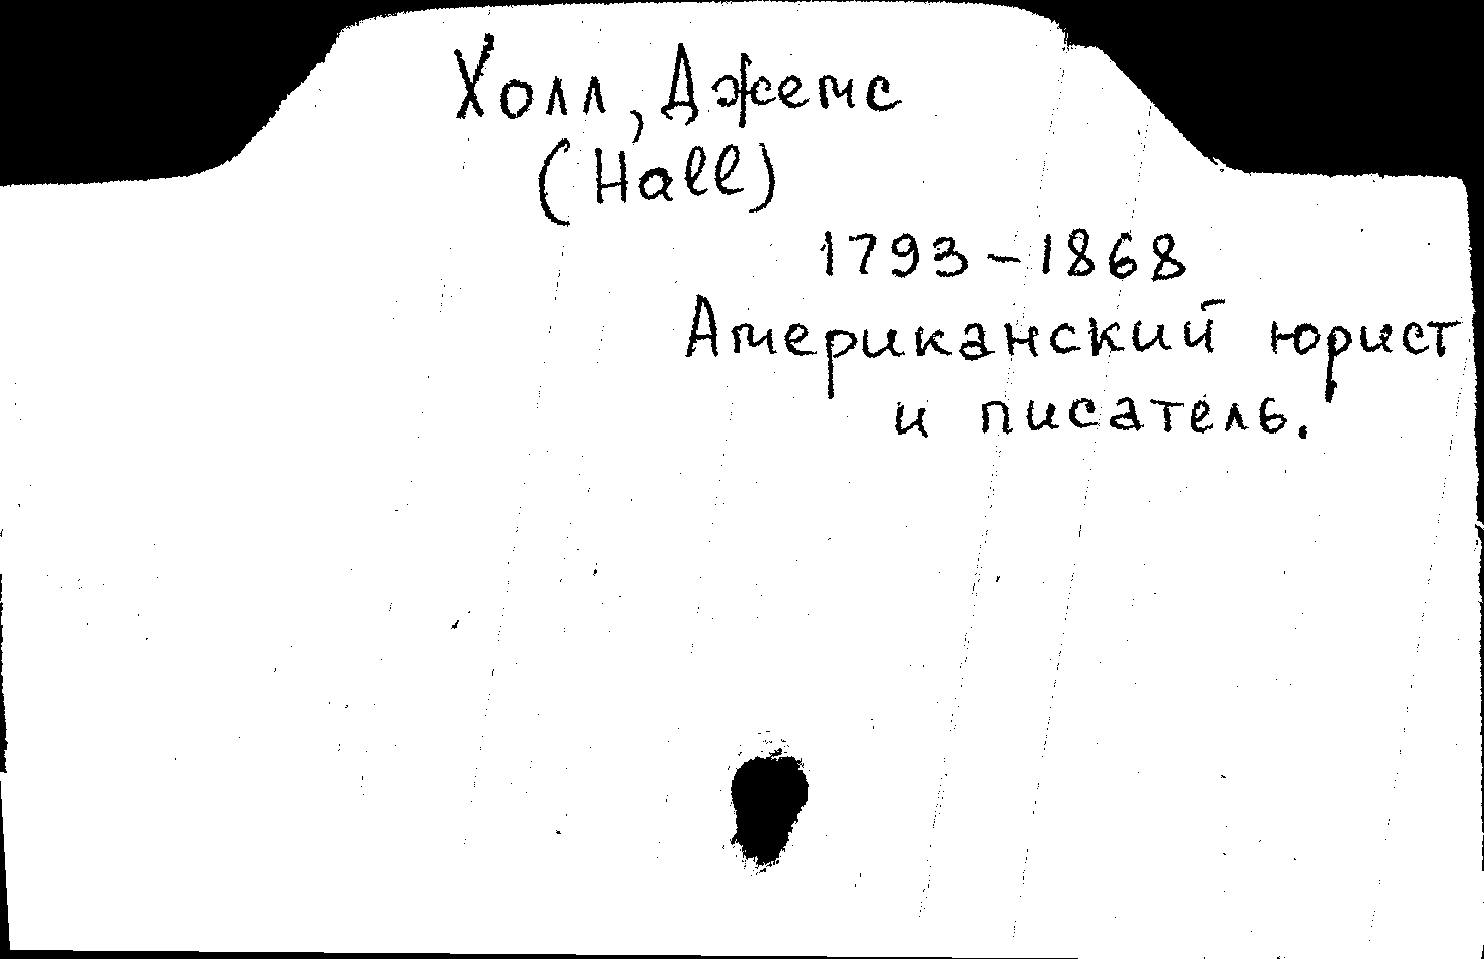 Холл, Джемс
(Hall)
1793-1868
Американский юрист
и писатель.